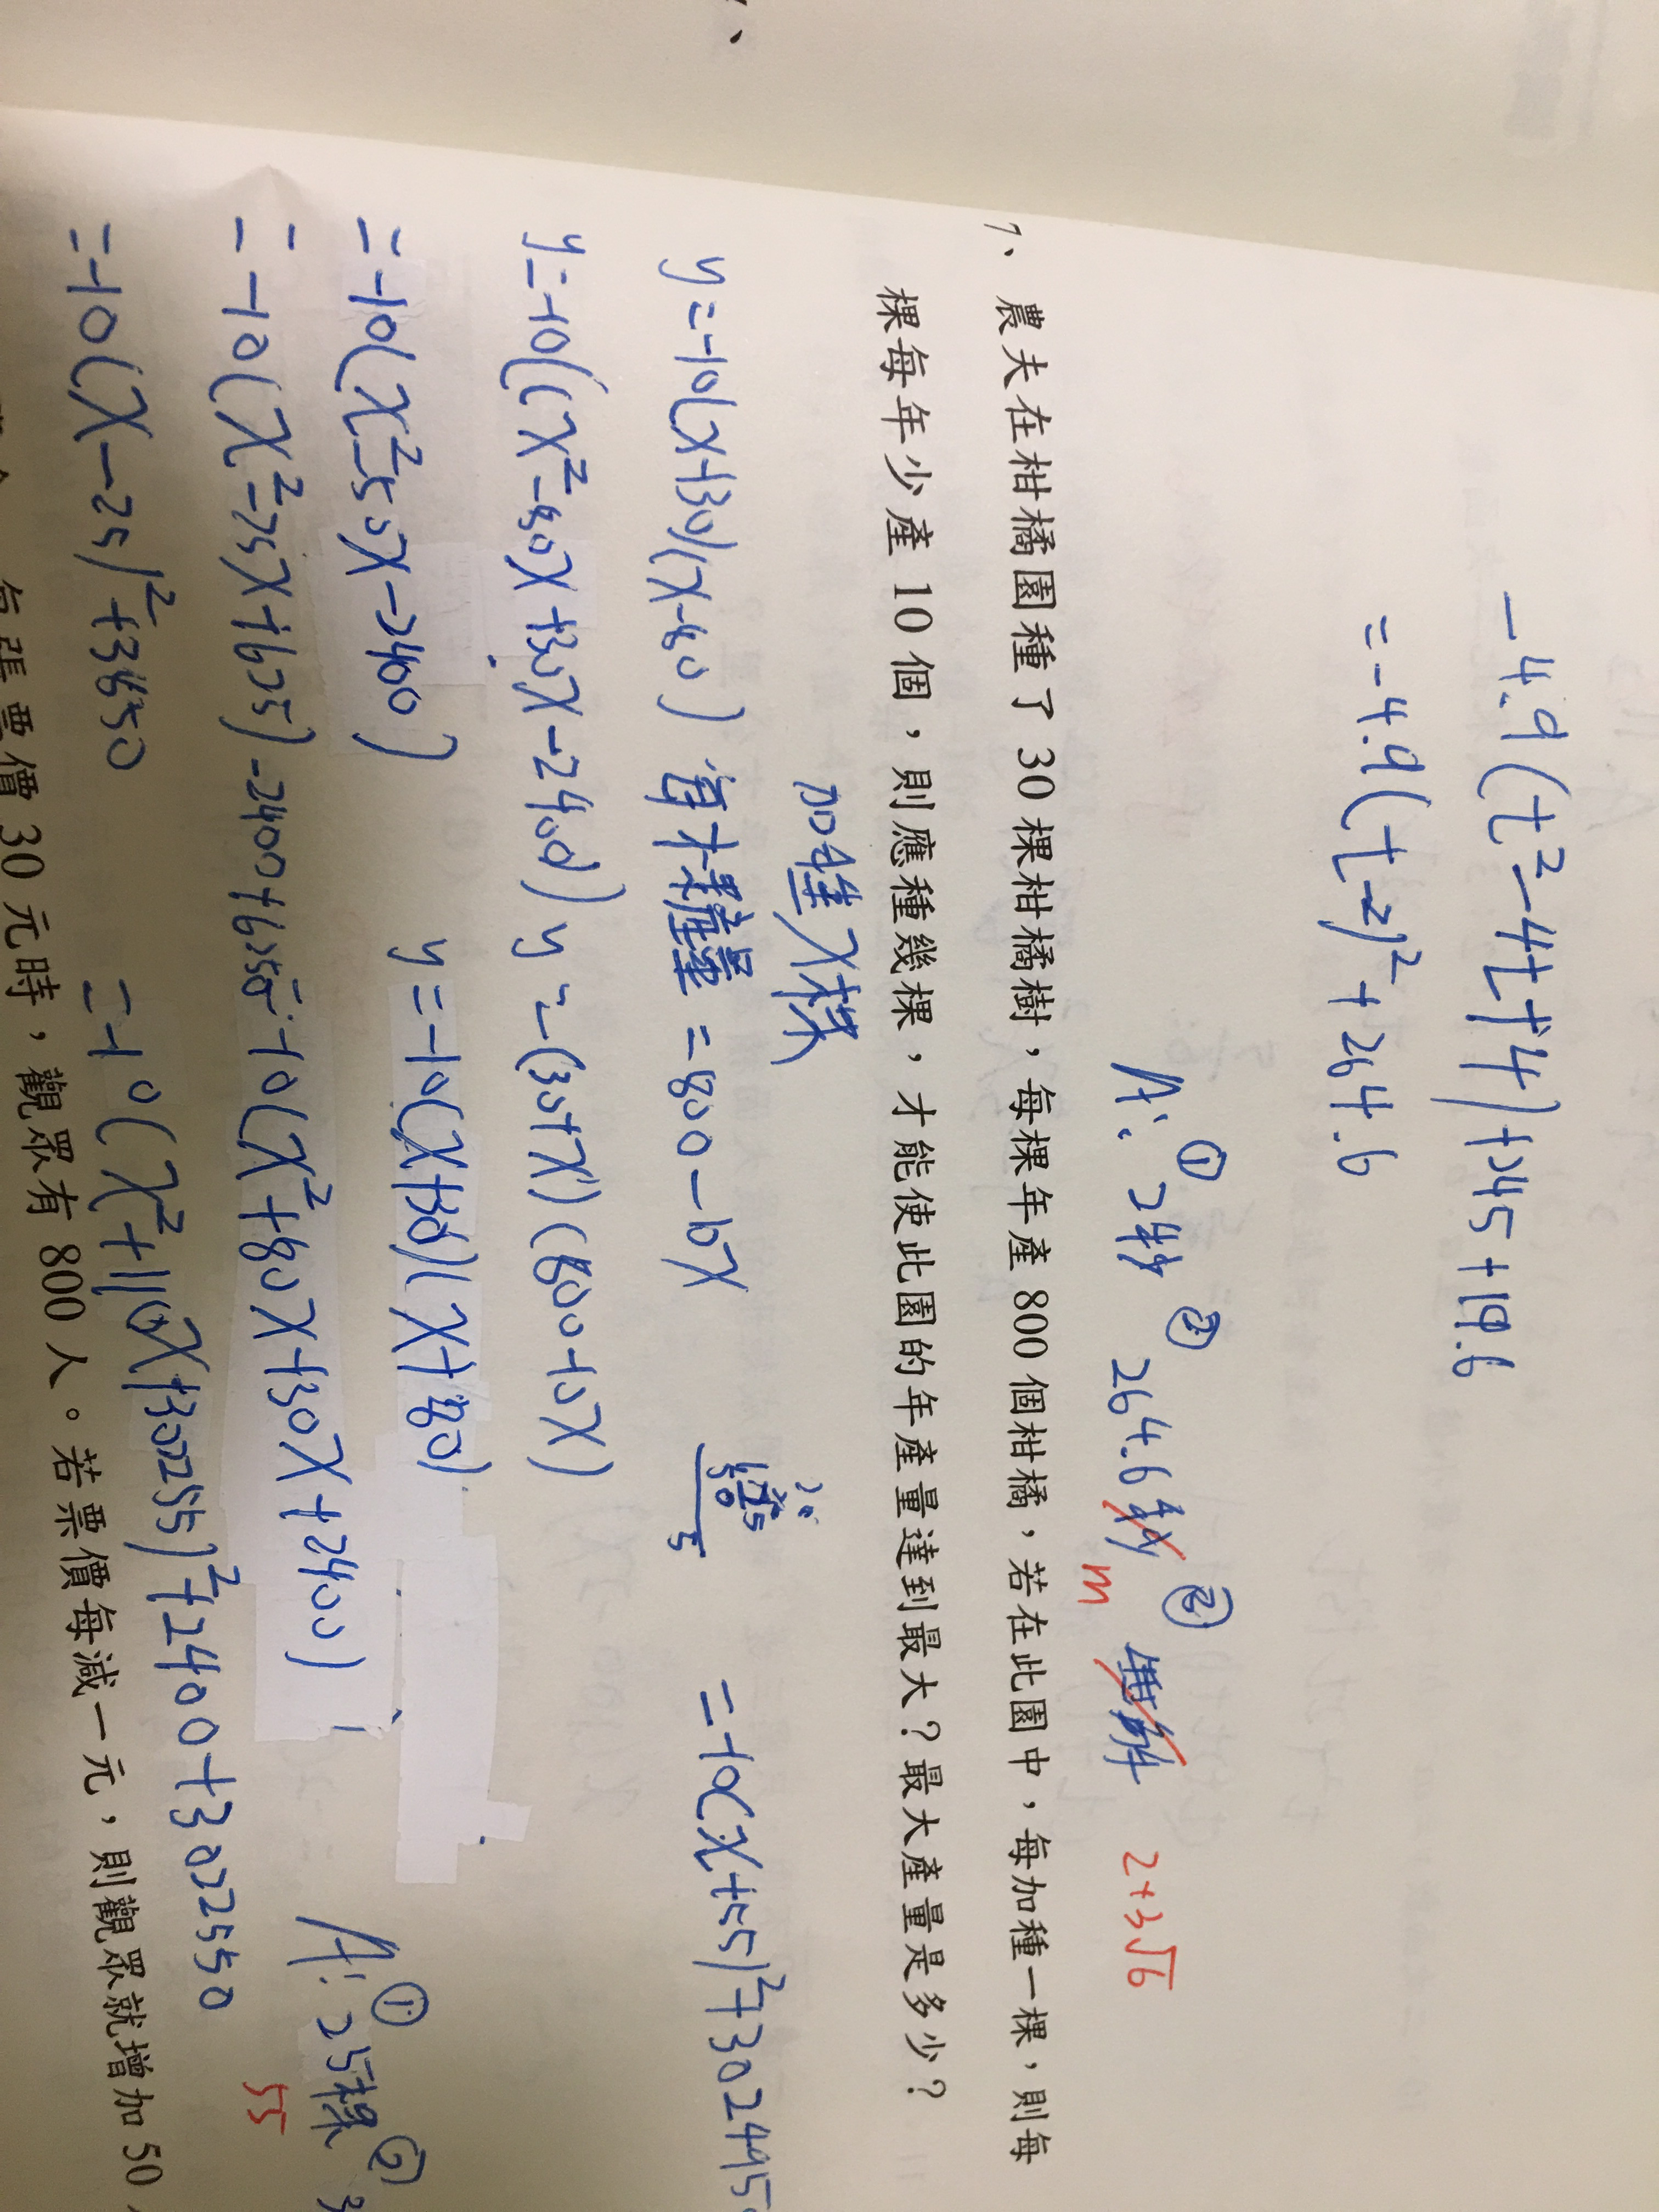 -4.9(t²-4t+4)+245+19.6
=-4.9(t-2)²+264.6
A: ① 2秒 ② 264.6秒 m ③ 無解 2+3√6
7、農夫在柑橘園種了 30 棵柑橘樹，每棵年產 800 個柑橘，若在此園中，每加種一棵，則每
棵每年少產 10 個，則應種幾棵，才能使此園的年產量達到最大？最大產量是多少？
加種X棵
y=-10(x+30)(x-80) 每棵產量=800-10x
=-10(x+55)²+302495
y=-10(x²-80x+30x-2400) y=(30+x)(800-10x)
=-10(x²-50x-2400) y=-10(x+30)(x+80)
=-10(x²-25x+625)-2400+6250 =-10(x²+80x+30x+2400)
=-10(x-25)²+3850 =-10(x²+110x+3025)²+2400+3022550
A: ① 25棵 55 ②
每張票價 30 元時，觀眾有 800 人。若票價每減一元，則觀眾就增加 50